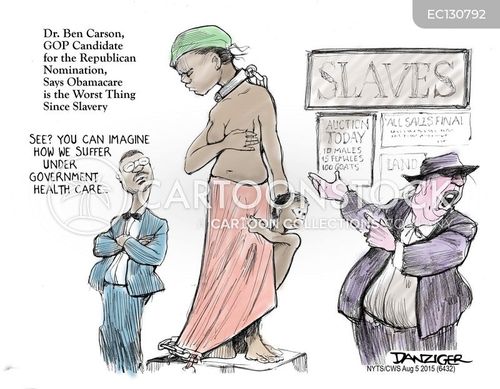 EC130792
Dr. Ben Carson,
GOP Candidate
for the Republican
Nomination,
Says Obamacare
is the Worst Thing
Since Slavery
SEE? YOU CAN IMAGINE
HOW WE SUFFER
UNDER
GOVERNMENT
HEALTH CARE..
SLAVES
AUCTION
TODAY
10 MALES
15 FEMALES
100 GOATS
ALL SALES FINAL
LAND
CARTOONSTOCK
CARTOON COLLECTIONS
DANZIGER
NYTS/CWS Aug 5 2015 (6432)